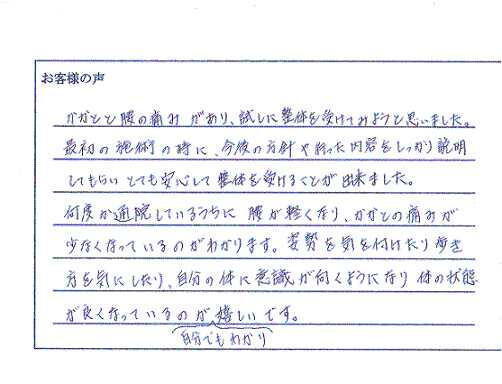 お客様の声
かかとと腰の痛みがあり、試しに整体を受けてみようと思いました。
最初の施術の時に、今後の方針や行った内容をしっかり説明
してもらいとても安心して整体を受けることが出来ました。
何度か通院しているうちに腰が軽くなり、かかとの痛みが
少なくなっているのがわかります。姿勢を気を付けたり歩き
方を気にしたり、自分の体に意識が向くようになり体の状態
が良くなっているのが嬉しいです。
自分でもわかり